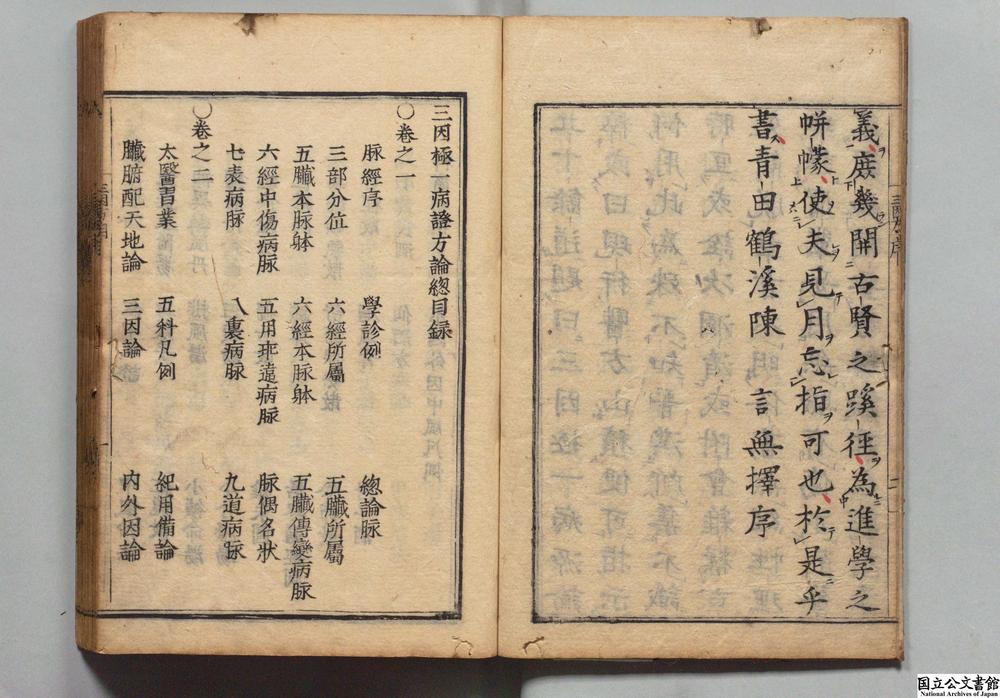 義庶幾開古賢之蹊徑為進學之
帡幪使夫見月忘指可也於是乎
書青田鶴溪陳言無擇序
三因極一病證方論總目録
○卷之一
脉經序 學診例 總論脉
三部分位 六經所屬 五臟所屬
五臟本脉躰 六經本脉躰 五臟傳變病脉
六經中傷病脉 五用乖違病脉 脉偶名狀
七表病脉 八裏病脉 九道病脉
○卷之二
太醫習業 五科凡例 紀用備論
臟腑配天地論 三因論 内外因論
国立公文書館
National Archives of Japan